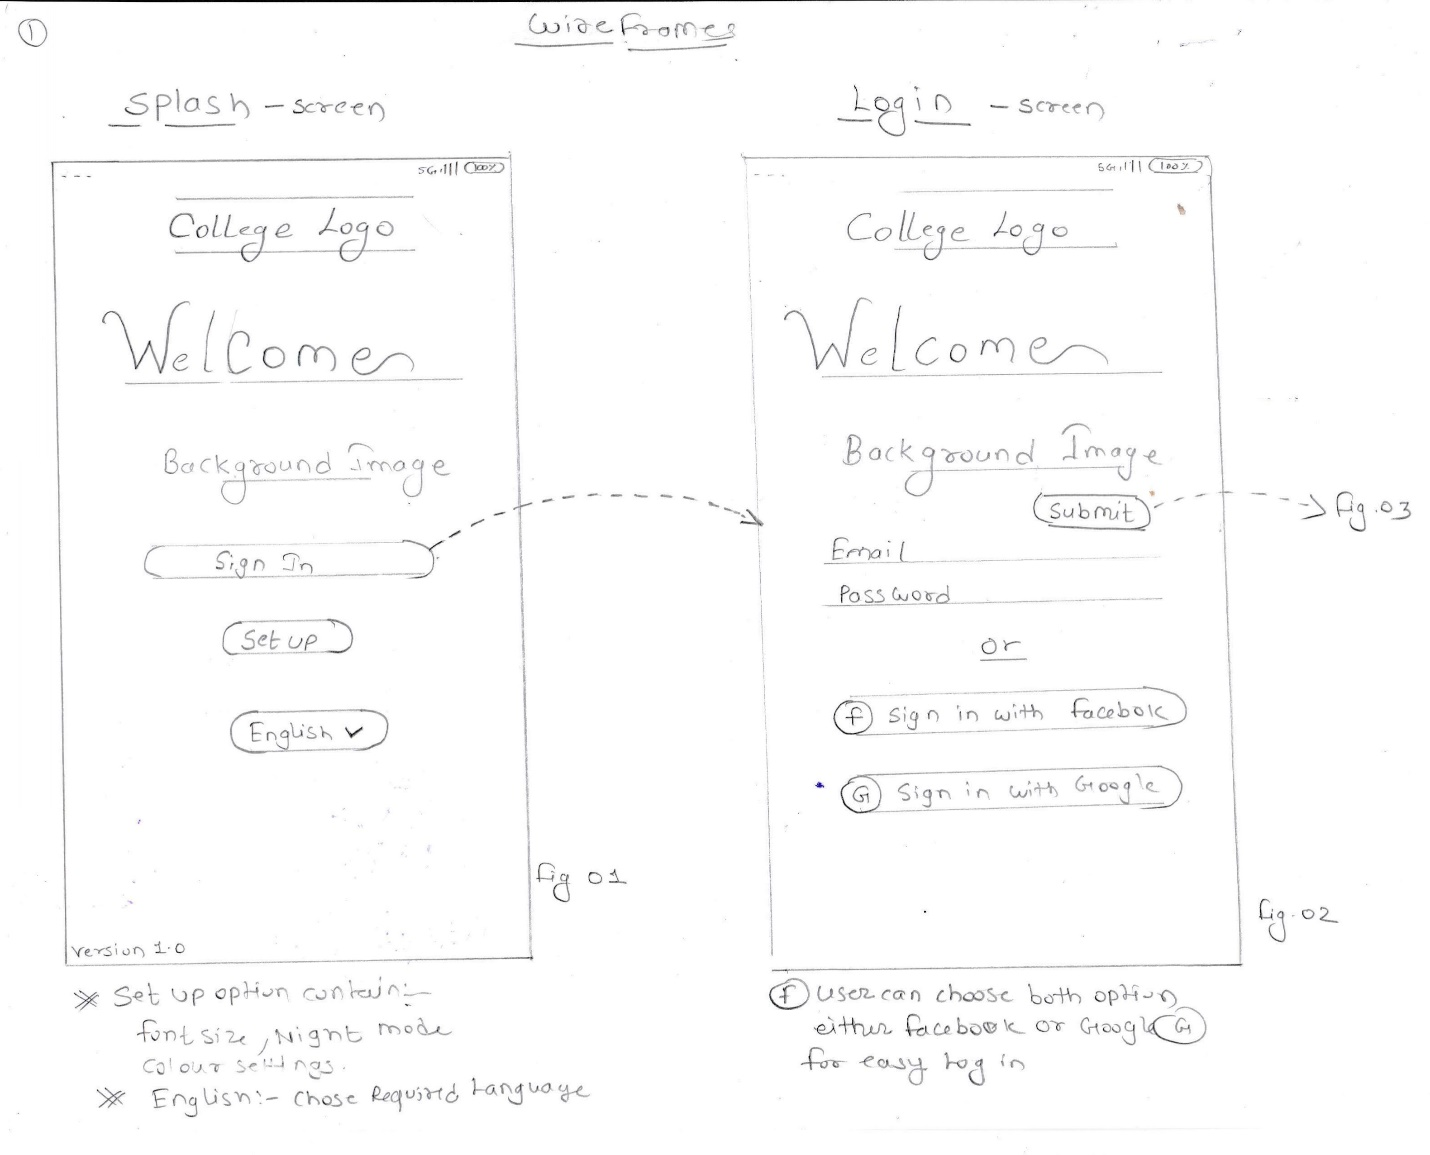 1
Wireframes
Splash - screen
5G 100%
College Logo
Welcome
Background Image
Sign In
Set up
English
fig 01
Version 1.0
* Set up option contain:-
font size, Night mode
Colour settings.
* English:- Chose Required Language
Login - screen
5G 100%
College Logo
Welcome
Background Image
Submit
fig.03
Email
Password
or
f Sign in with facebok
G Sign in with Google
fig.02
f User can choose both option
either facebook or Google G
for easy Log in